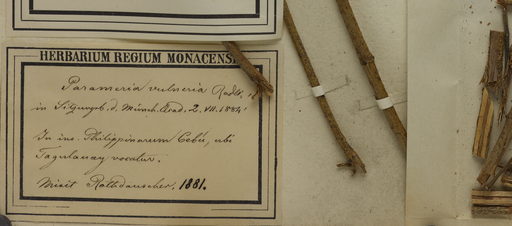 HERBARIUM REGIUM MONACENSE
Parameria vulneria Radlk.
in Sitzungsb. d. Münch. Acad. 2. VII. 1884.
In ins. Philippinarum Cebú, ubi
Tagulauay vocatur.
Misit Rothdauscher, 1881.